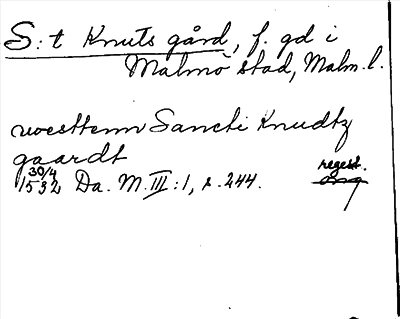 S:t Knuts gård, f. gd i
Malmö stad, Malm. l.
woesttenn Sancti Knudtz
gaardt
30/4 1532 Da. M. III:1, s. 244. regest.